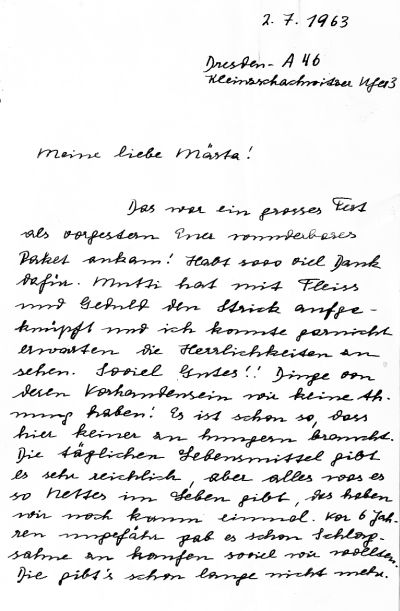 2. 7. 1963
Dresden - A 46
Kleinzschachwitzer Ufer 3
Meine liebe Märta!
Das war ein grosses Fest
als vorgestern Euer wunderbares
Paket ankam! Habt sooo viel Dank
dafür. Mutti hat mit Fleiss
und Geduld den Strick aufge-
knüpft und ich konnte garnicht
erwarten die Herrlichkeiten zu
sehen. Soviel Gutes!! Dinge von
deren Vorhandensein wir keine Ah-
nung haben! Es ist schon so, dass
hier keiner zu hungern braucht.
Die täglichen Lebensmittel gibt
es sehr reichlich, aber alles was es
so Nettes im Leben gibt, das haben
wir noch kaum einmal. Vor 6 Jah-
ren ungefähr gab es schon Schlag-
sahne zu kaufen soviel wir wollten.
Die gibt's schon lange nicht mehr.